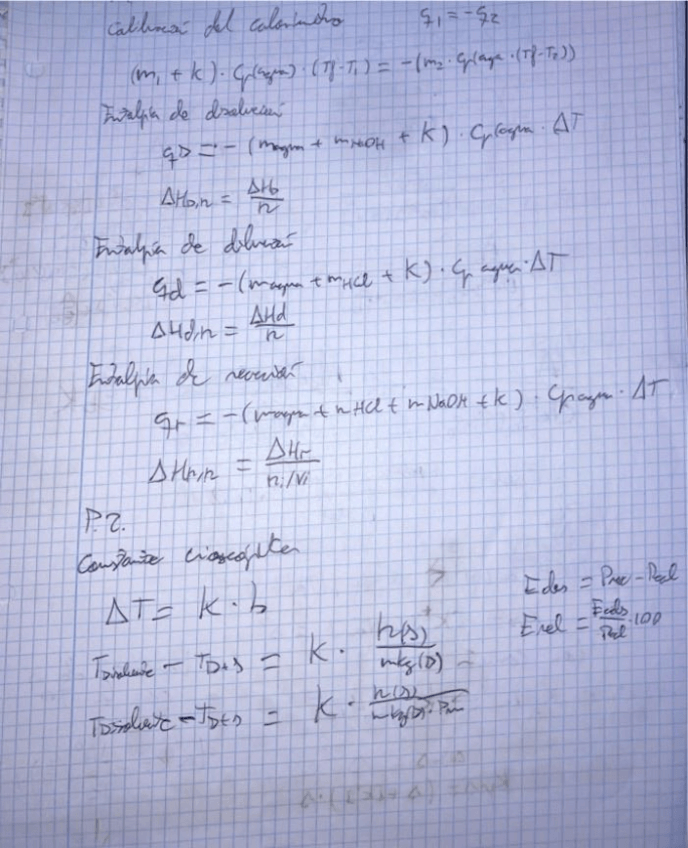 Calibración del calorímetro q₁ = -q₂
(m₁ + k) · Cp(agua) · (Tf-T₁) = -(m₂ · Cp(agua · (Tf-T₂))
Entalpía de disolución
qD = - (magua + mNaOH + K) · Cp(agua · ΔT
ΔHD,n = ΔHD/n
Entalpía de dilución
qd = -(magua + mHCl + K) · Cp agua · ΔT
ΔHd,n = ΔHd/n
Entalpía de reacción
qr = -(magua + mHCl + mNaOH + k) · Cp agua · ΔT
ΔHr,n = ΔHr/ni/νi
P.2.
Constante crioscópica
ΔT = K · b
Edes = Prec - Real
TDisolvente - TD+s = K · n(s)/mkg(D)
Erel = Eabs/Real · 100
TDisolvente - TD+s = K · n(s)/mkg(D) · Pm